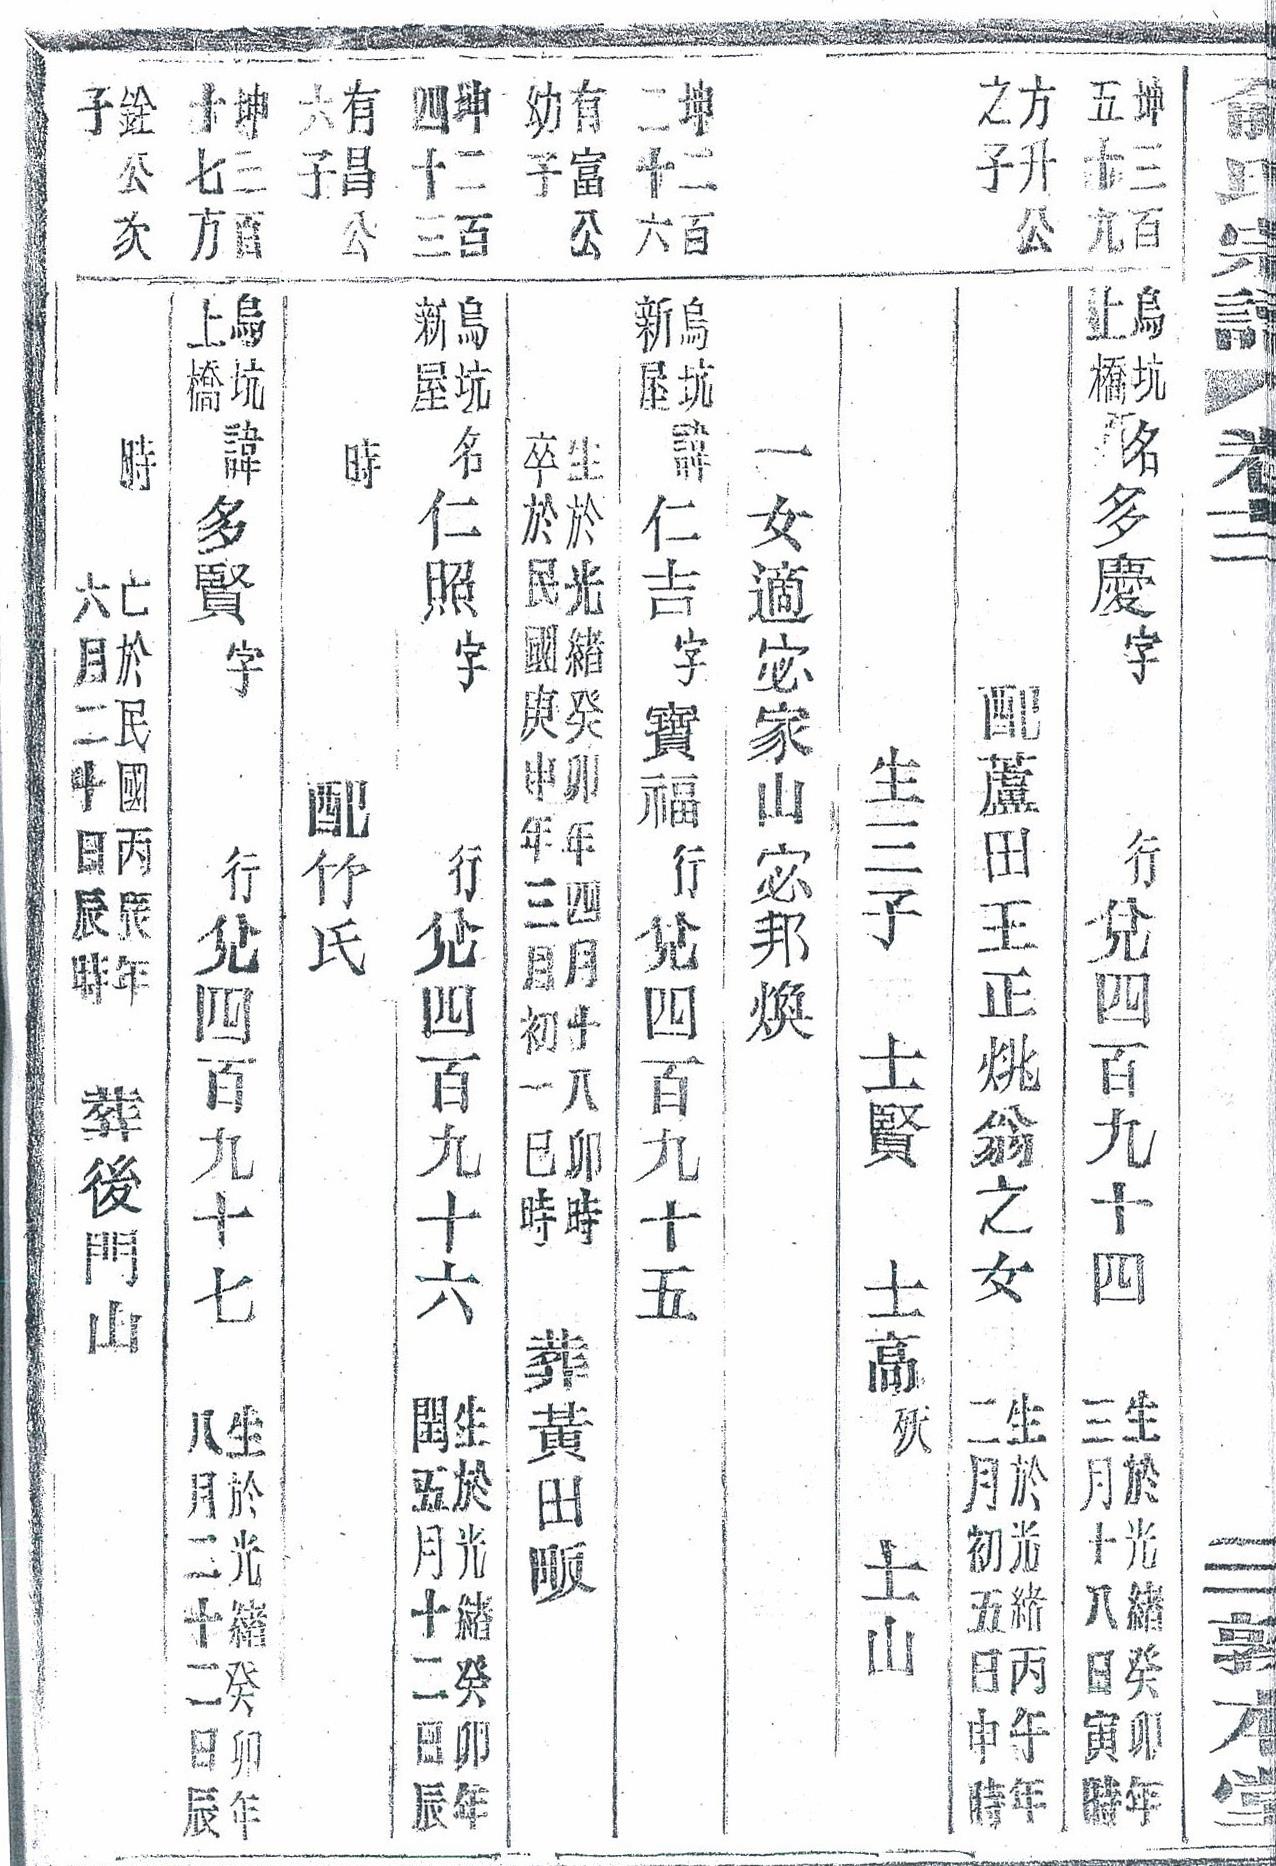 俞氏宗譜 卷三 三 敦本堂
坤三百
五十九
方升公
之子
坤二百
二十六
有富公
幼子
坤二百
四十三
有昌公
六子
坤三百
十七方
銓公次
子
烏坑
上橋
名多慶字 行兌四百九十四
生於光緒癸卯年
三月十八日寅時
配蘆田王正烑翁之女
生於光緒丙午年
二月初五日申時
生三子 士賢 士高殀 士山
一女適宓家山宓邦煥
烏坑
新屋
諱仁吉字寶福行兌四百九十五
生於光緒癸卯年四月十八卯時
卒於民國庚申年三月初一巳時
葬黃田畈
烏坑
新屋
名仁照字 行兌四百九十六
生於光緒癸卯年
閏五月十二日辰
時
配竹氏
烏坑
上橋
諱多賢字 行兌四百九十七
生於光緒癸卯年
八月二十二日辰
時
亡於民國丙辰年
六月二十日辰時
葬後門山